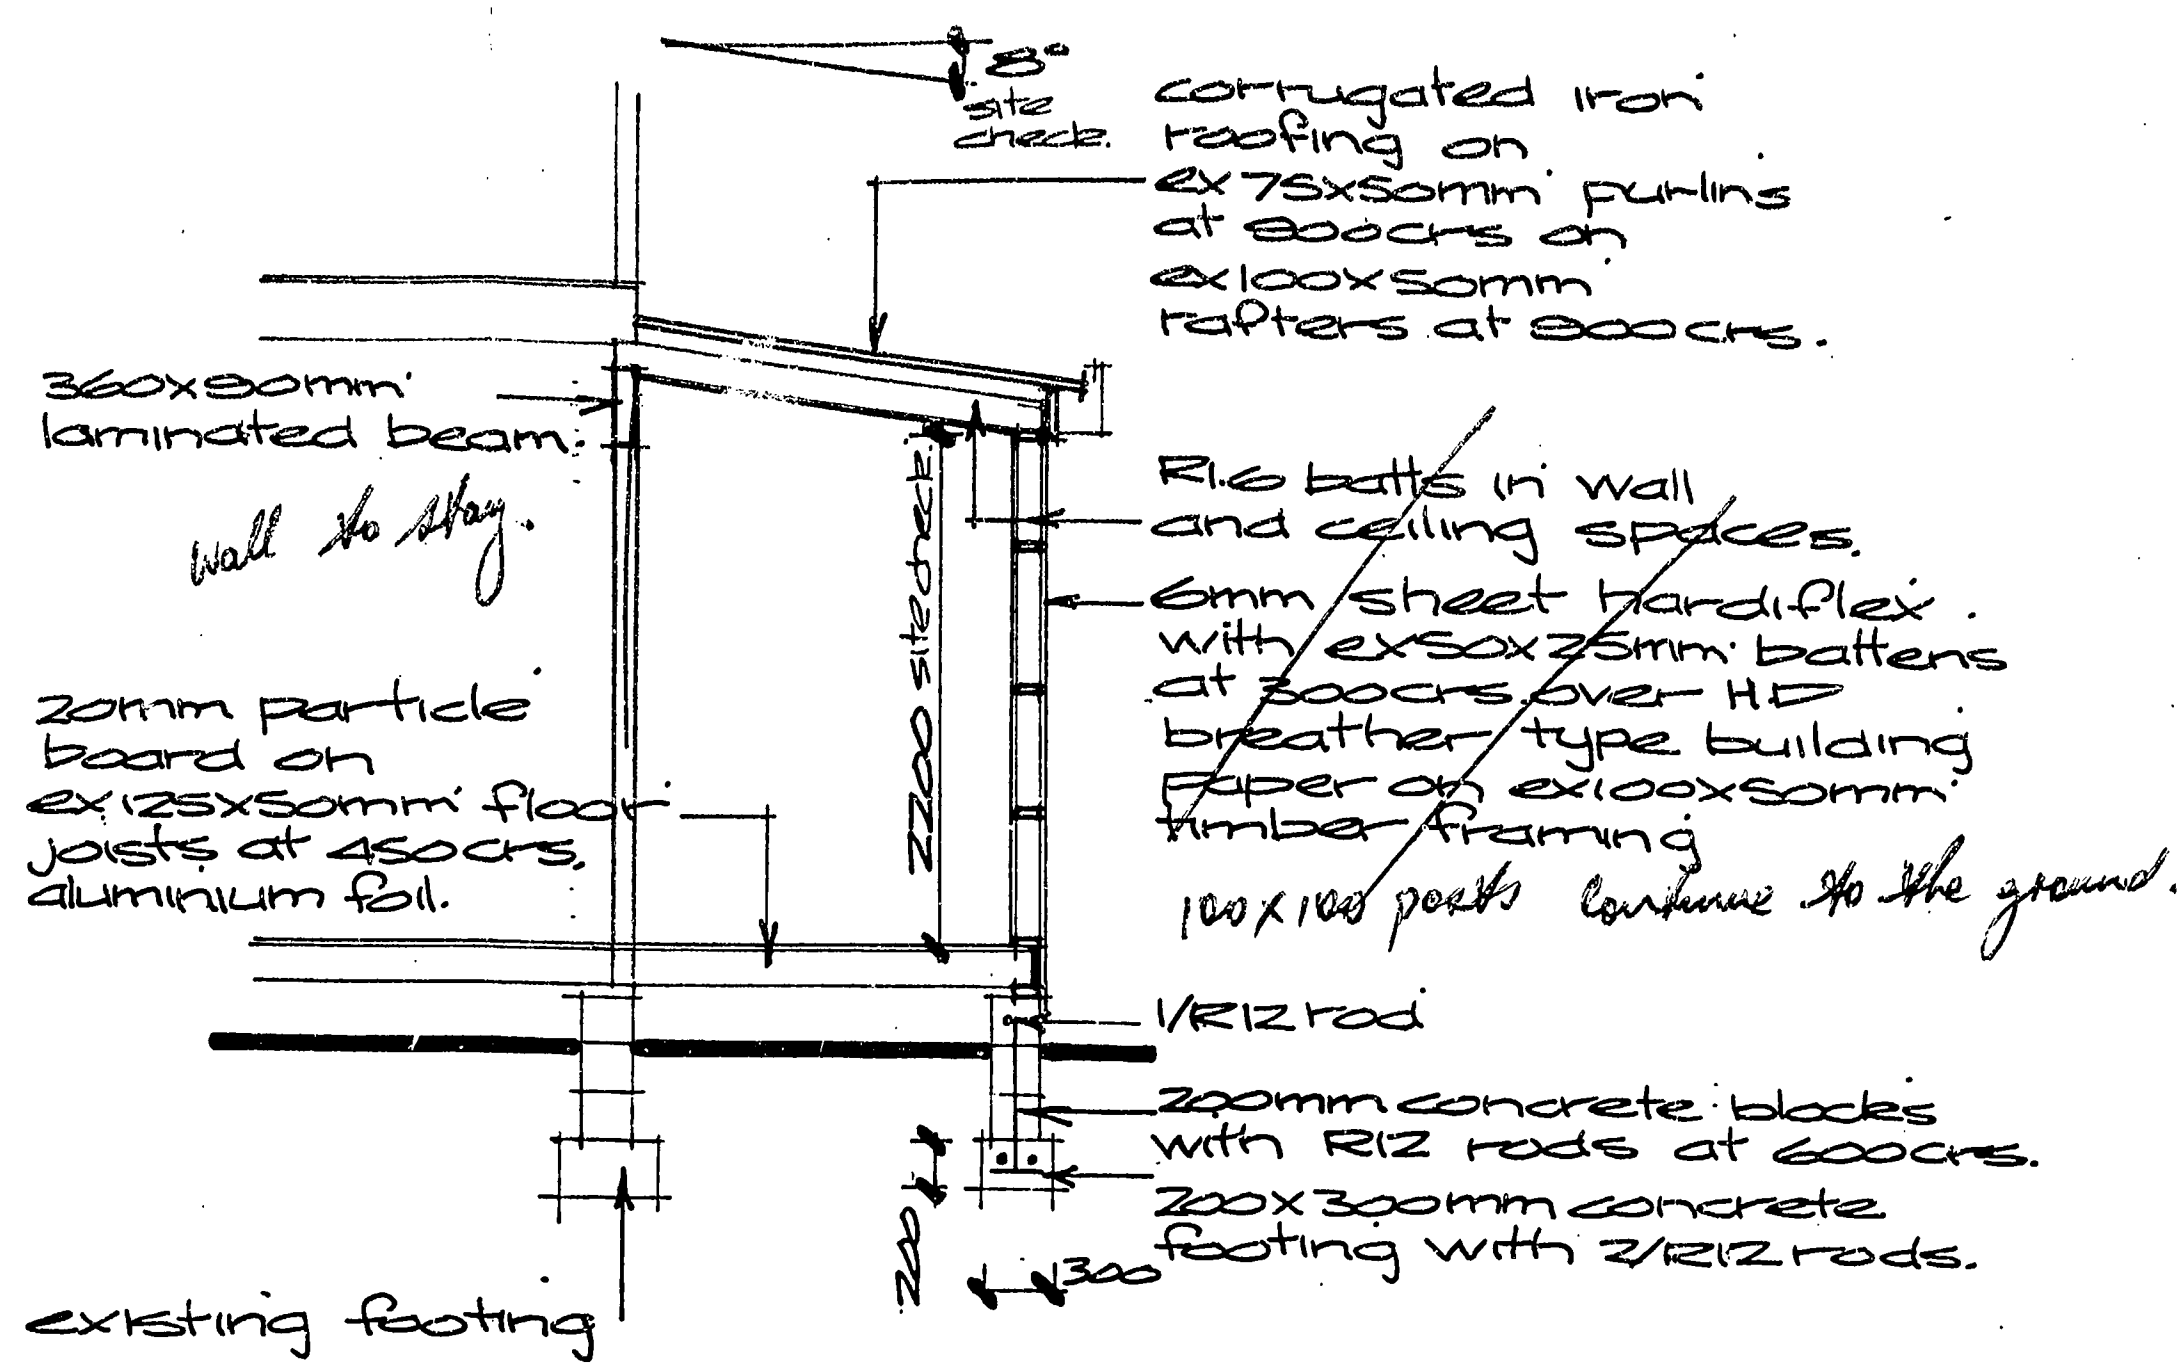 8°
site
check.
corrugated iron
roofing on
ex 75x50mm purlins
at 900crs on
ex 100x50mm
rafters at 900crs.
360x90mm
laminated beam.
wall to stay.
2200 sitecheck.
R1.6 batts in wall
and ceiling spaces.
6mm sheet hardiflex
with ex50x25mm battens
at 300crs over H.D
breather type building
paper on ex100x50mm
timber framing
100x100 posts continue to the ground.
20mm particle
board on
ex 125x50mm floor
joists at 450crs.
aluminium foil.
1/R12 rod
200mm concrete blocks
with R12 rods at 600crs.
200x300mm concrete
footing with 2/R12 rods.
200
300
existing footing